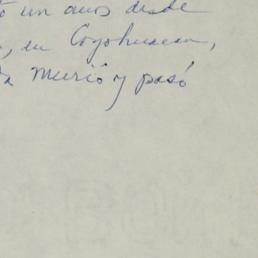 un anos desde
, en Coyohuacan,
murió y pasó